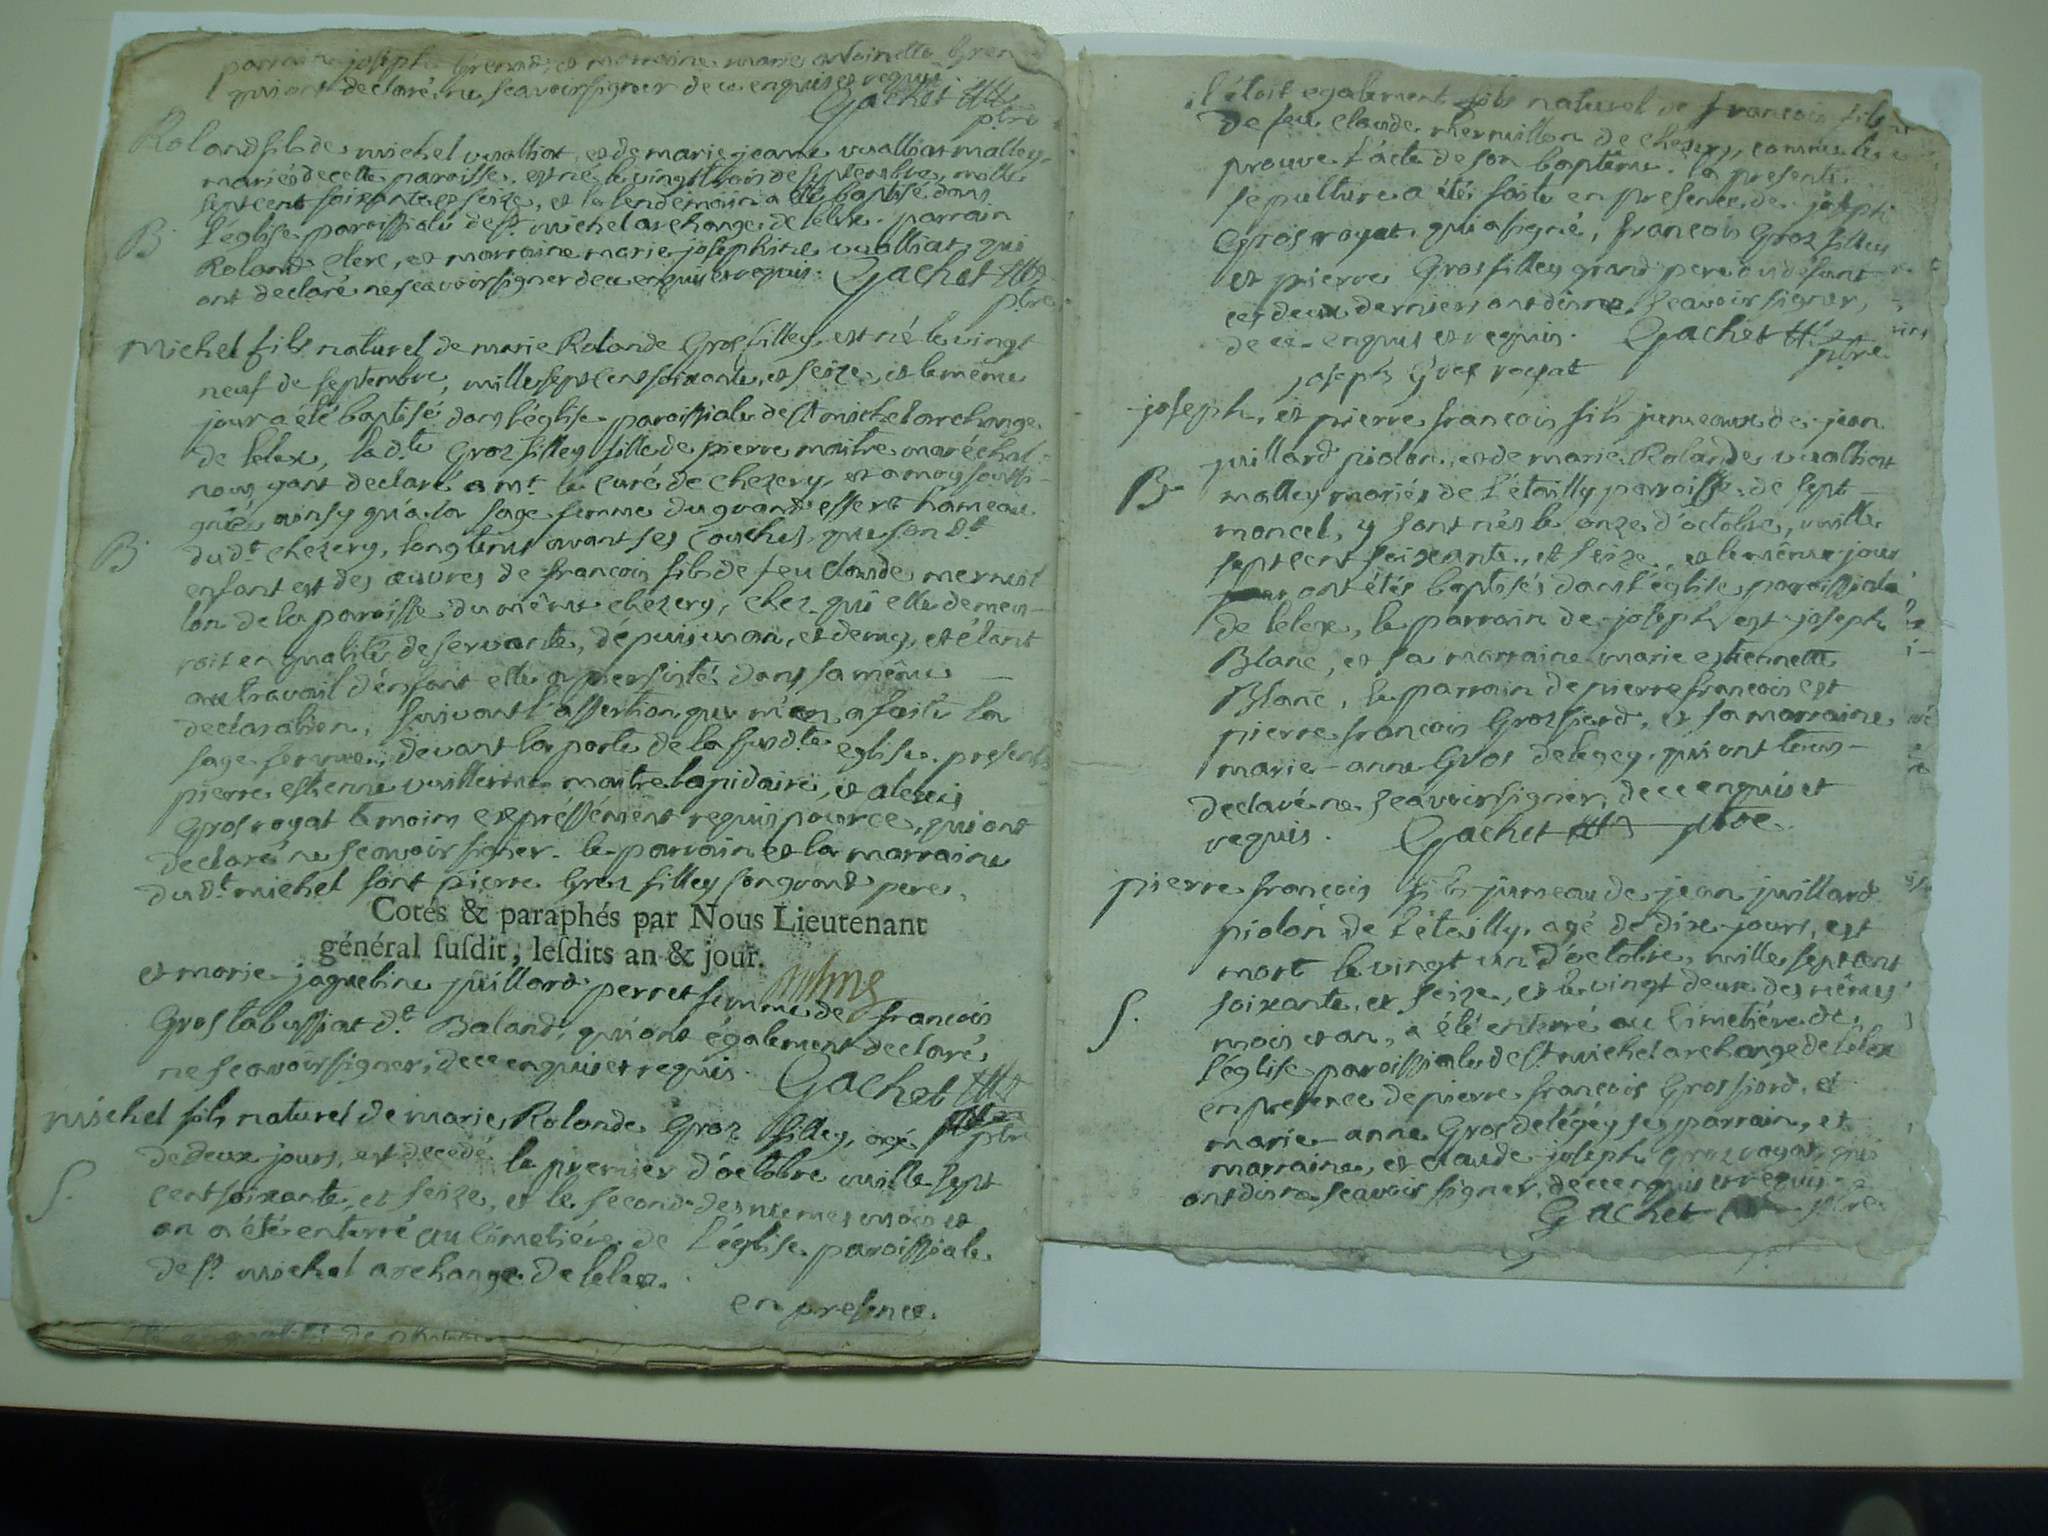 parrain joseph Grenard, et marraine marie antoinette Gren
qui ont declaré ne scavoir signer de ce enquis et requis
Gachet
ptre
Roland fils de michel vualliat, et de marie jeanne vualliat malley,
mariés de cette paroisse, est né le vingt trois de septembre, mille
sept cent soixante et seize, et le lendemain a été baptisé dans
B. l'église paroissiale de st. michel archange de lelex. parrain
Roland Clerc, et marraine marie josephine vualliat, qui
ont declaré ne scavoir signer de ce enquis et requis. Gachet
ptre
Michel fils naturel de marie Rolande Grosfilley, est né le vingt
neuf de septembre, mille sept cent soixante, et seize, et le même
jour a été baptisé dans l'église paroissiale de st michel archange
de lelex, lad.te Gros filley fille de pierre maitre maréchal
nous yant declaré a mr. le curé de chezery, et a moy soussi-
gné, ainsy qu'a la sage femme du grand essert hameau
B. dud.t chezery, longtems avant ses couches, que son d.t
enfant est des œuvres de françois fils de feu claude mermil
lon de la paroisse du même chezery, chez qui elle demeu-
roit en qualité de servante, depuis un an, et demy, et étant
au travail d'enfant elle a persisté dans sa même
declaration, suivant l'assertion que m'en a faite la
sage femme, devant la porte de la susd.te eglise, presents
pierre estienne vuillermet maitre lapidaire, et alexis
Gros royat témoins expréssément requis pour ce, qui ont
declaré ne scavoir signer. le parrain et la marraine
dud.t michel sont pierre Gros filley son grand pere,
Cotés & paraphés par Nous Lieutenant
général ſuſdit, leſdits an & jour.
et marie jaqueline juillard perret femme de françois
Gros labussiat d.t Baland, qui ont également declaré
ne scavoir signer, de ce enquis et requis. Gachet
ptre
michel fils naturel de marie Rolande Gros filley, agé
de deux jours, est decedé le premier d'octobre mille sept
S. cent soixante, et seize, et le second des mêmes mois et
an a été enterré au cimetiére de l'église paroissiale
de st. michel archange de lelex.
en presence.
il étoit egalement fils naturel de françois fils
de feu claude mermillon de chezery, comme le
prouve l'acte de son baptême. la presente
sepulture a été faite en presence de joseph
Gros royat, qui a signé, françois Gros filley
et pierre Gros filley grand pere du défunt
ces deux derniers ont dit ne scavoir signer,
de ce enquis et requis. Gachet
ptre
joseph Gros royat
joseph, et pierre françois fils jumeaux de jean
juillard piolon, et de marie Rolande vualliat
B. malley mariés de l'étailly parroisse de sept-
moncel, y sont nés le onze d'octobre, mille
sept cent soixante, et seize, et le même jour
ont étés baptisés dans l'église paroissiale
de lelex, le parrain de joseph est joseph
Blanc, et sa marraine marie estiennette
Blanc, le parrain de pierre françois est
pierre françois Grosfiord, et sa marraine
marie-anne Gros delegey, qui ont tous
declaré ne scavoir signer, de ce enquis et
requis. Gachet ptre.
pierre françois fils jumeau de jean juillard
piolon de l'étailly, agé de dix jours, est
mort le vingt un d'octobre, mille sept cent
soixante, et seize, et le vingt deux des mêmes
S. mois et an, a été enterré au cimetiére de
l'église paroissiale de st. michel archange de lelex
en presence de pierre françois Grosfiord, et
marie-anne Gros delégéy ses parrain, et
marraine, et claude joseph Gros royat, qui
ont dit ne scavoir signer, de ce enquis et requis.
Gachet ptre